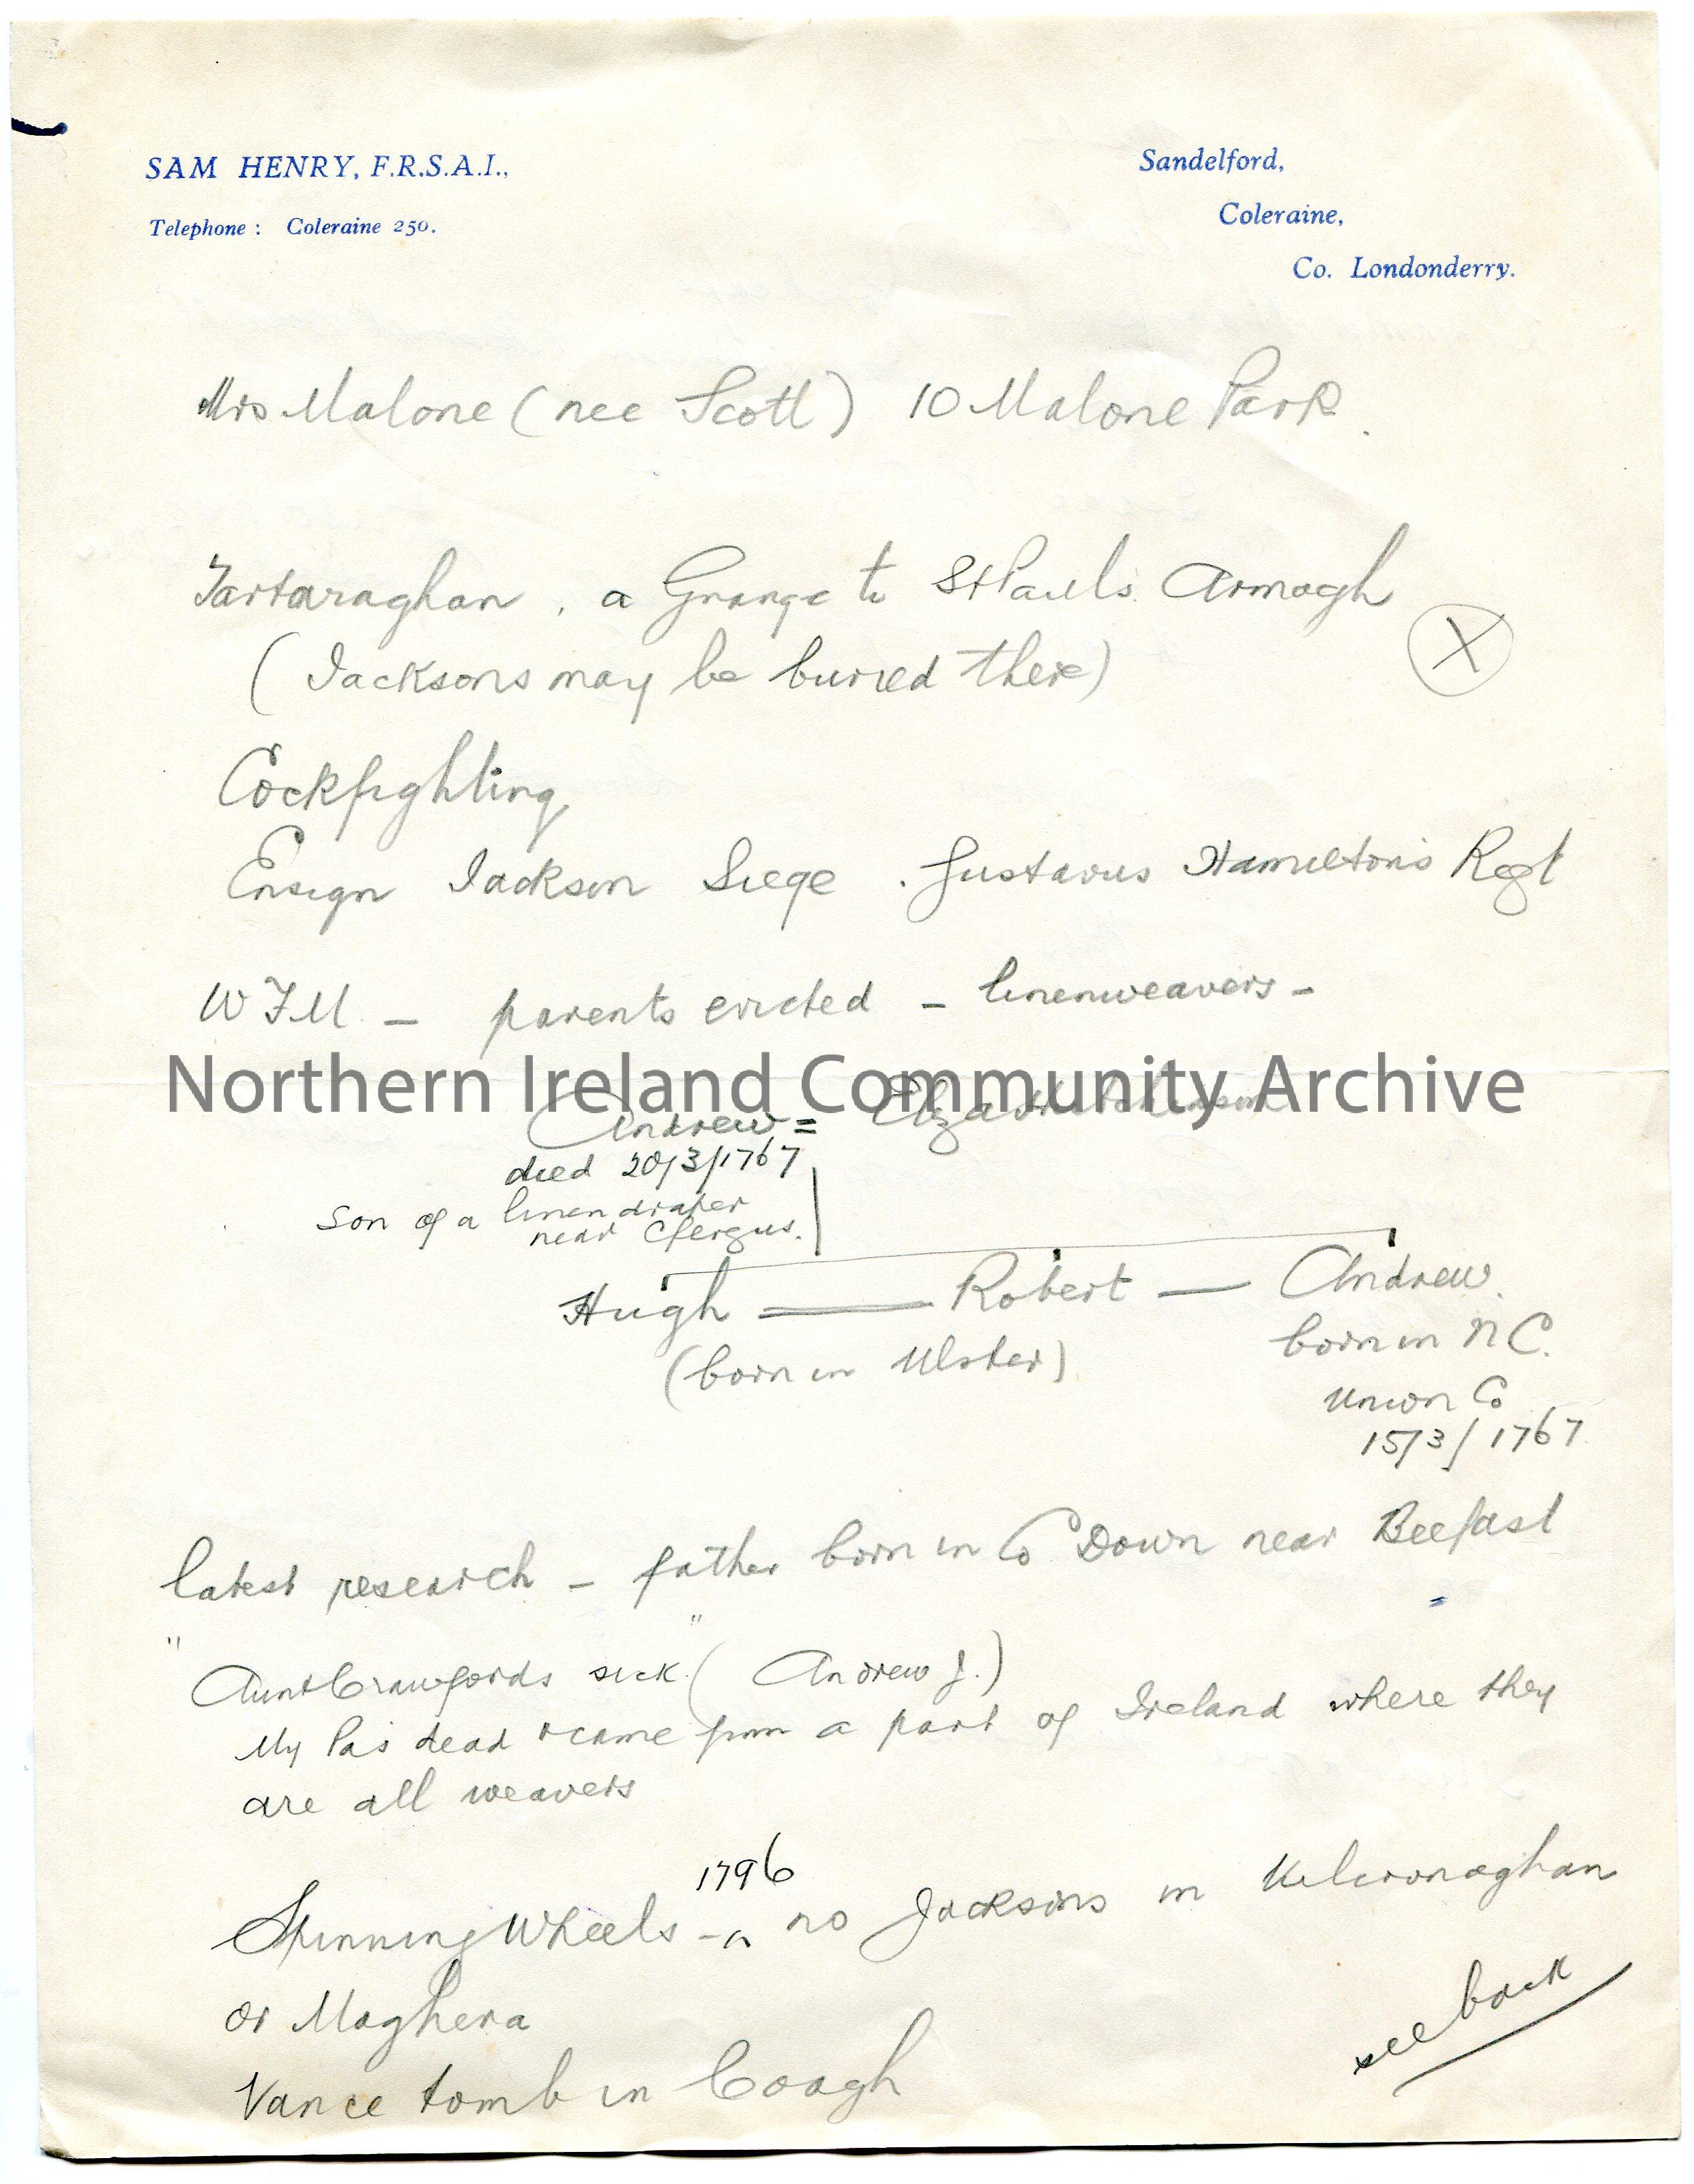 SAM HENRY, F.R.S.A.I.,
Telephone : Coleraine 250.
Sandelford,
Coleraine,
Co. Londonderry.
Mrs Malone (nee Scott) 10 Malone Park.
Tartaraghan, a Grange to St Pauls. Armagh
(Jacksons may be buried there)
X
Cockfighting
Ensign Jackson Siege. Gustavus Hamilton's Regt
W F M. – parents evicted – linenweavers –
Northern Ireland Community Archive
Andrew = Eliza Hutchinson
died 20/3/1767
son of a linen draper
near Cfergus.
Hugh — Robert — Andrew.
(born in Ulster)
born in N C.
Union Co
15/3/1767
latest research – father born in Co Down near Belfast
"Aunt Crawfords sick." (Andrew J.)
My Pa's dead & came from a part of Ireland where they
are all weavers
1796
Spinning Wheels – ^ no Jacksons in Kilcronaghan
or Maghera
see back
Vance tomb in Coagh